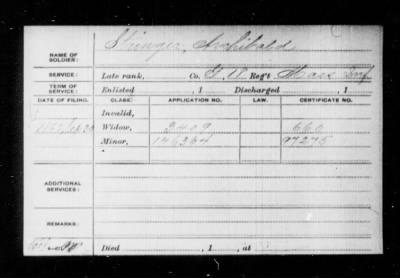 Stinger, Archibald
NAME OF
SOLDIER:
SERVICE: Late rank, Co. Reg't Mass Inf
TERM OF
SERVICE: Enlisted , 1 Discharged , 1
DATE OF FILING. CLASS. APPLICATION NO. LAW. CERTIFICATE NO.
Invalid,
Widow, 2409 660
Minor, 146364 97275
ADDITIONAL
SERVICES:
REMARKS:
Died , 1 , at